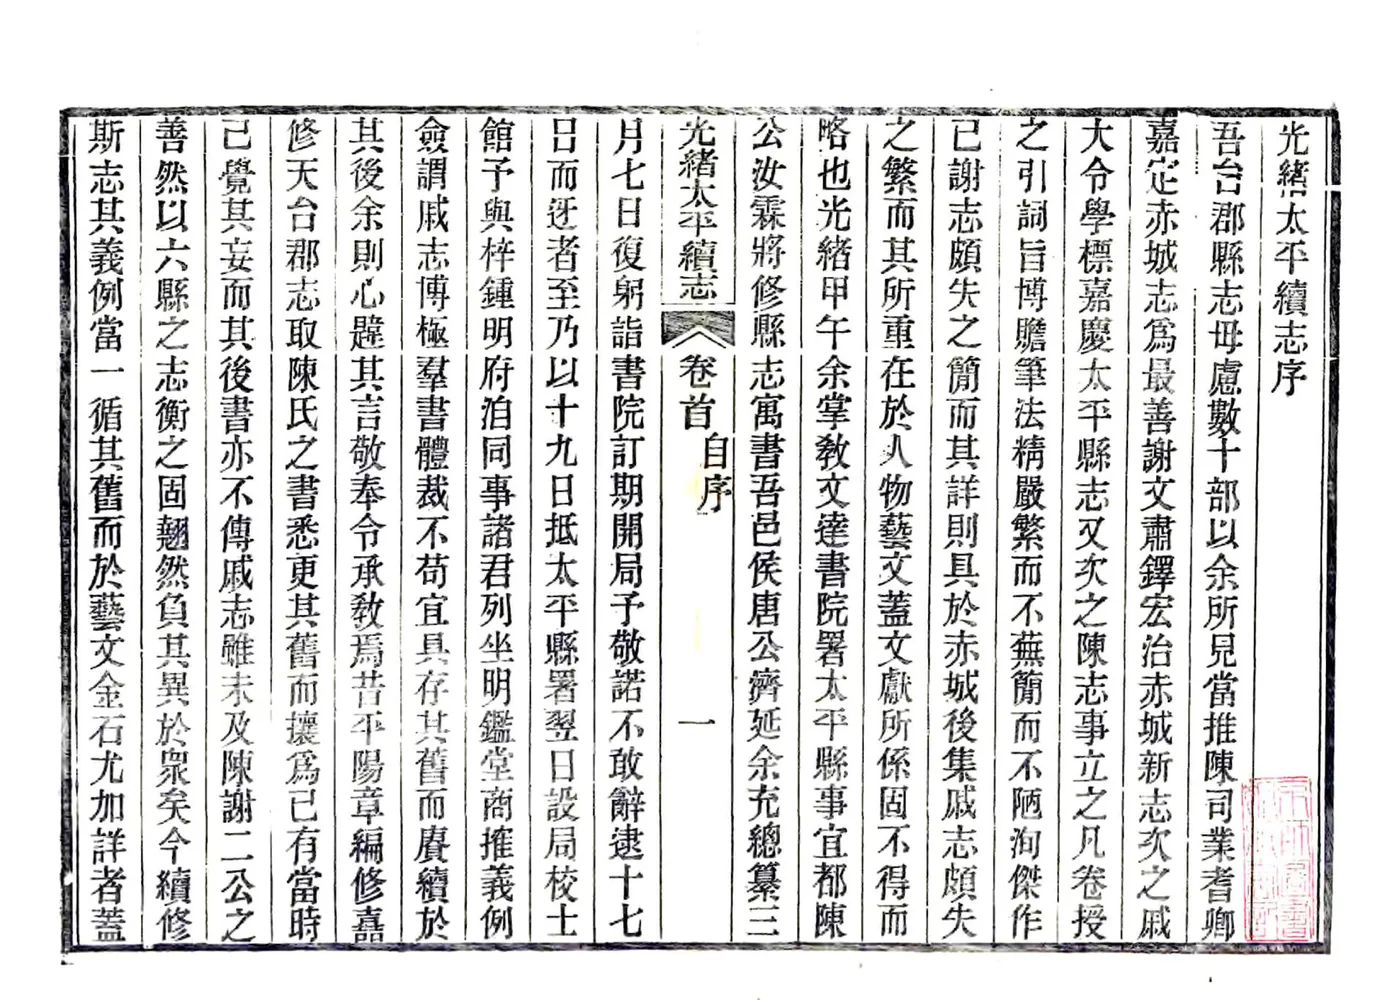 光緒太平續志序
吾台郡縣志毋慮數十部以余所見當推陳司業耆卿
嘉定赤城志爲最善謝文肅鐸宏治赤城新志次之戚
大令學標嘉慶太平縣志又次之陳志事立之凡卷授
之引詞旨博贍筆法精嚴繁而不蕪簡而不陋洵傑作
已謝志頗失之簡而其詳則具於赤城後集戚志頗失
之繁而其所重在於人物藝文蓋文獻所係固不得而
略也光緒甲午余掌敎文達書院署太平縣事宜都陳
公汝霖將修縣志寓書吾邑侯唐公濟延余充總纂三
光緒太平續志
卷首
自序
一
月七日復躬詣書院訂期開局予敬諾不敢辭逮十七
日而迓者至乃以十九日抵太平縣署翌日設局校士
館予與梓鍾明府洎同事諸君列坐明鑑堂商搉義例
僉謂戚志博極羣書體裁不苟宜具存其舊而賡續於
其後余則心韙其言敬奉令承敎焉昔平陽章編修嘉
修天台郡志取陳氏之書悉更其舊而攘爲己有當時
已覺其妄而其後書亦不傳戚志雖未及陳謝二公之
善然以六縣之志衡之固翹然負其異於衆矣今續修
斯志其義例當一循其舊而於藝文金石尤加詳者蓋